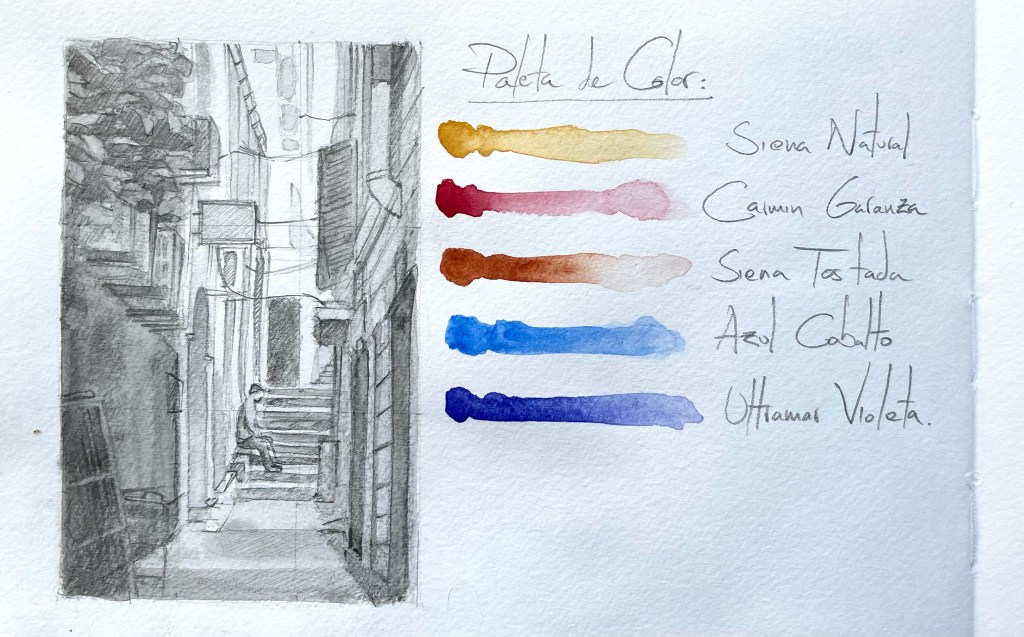 Paleta de Color:
Siena Natural
Carmin Garanza
Siena Tostada
Azul Cobalto
Ultramar Violeta.